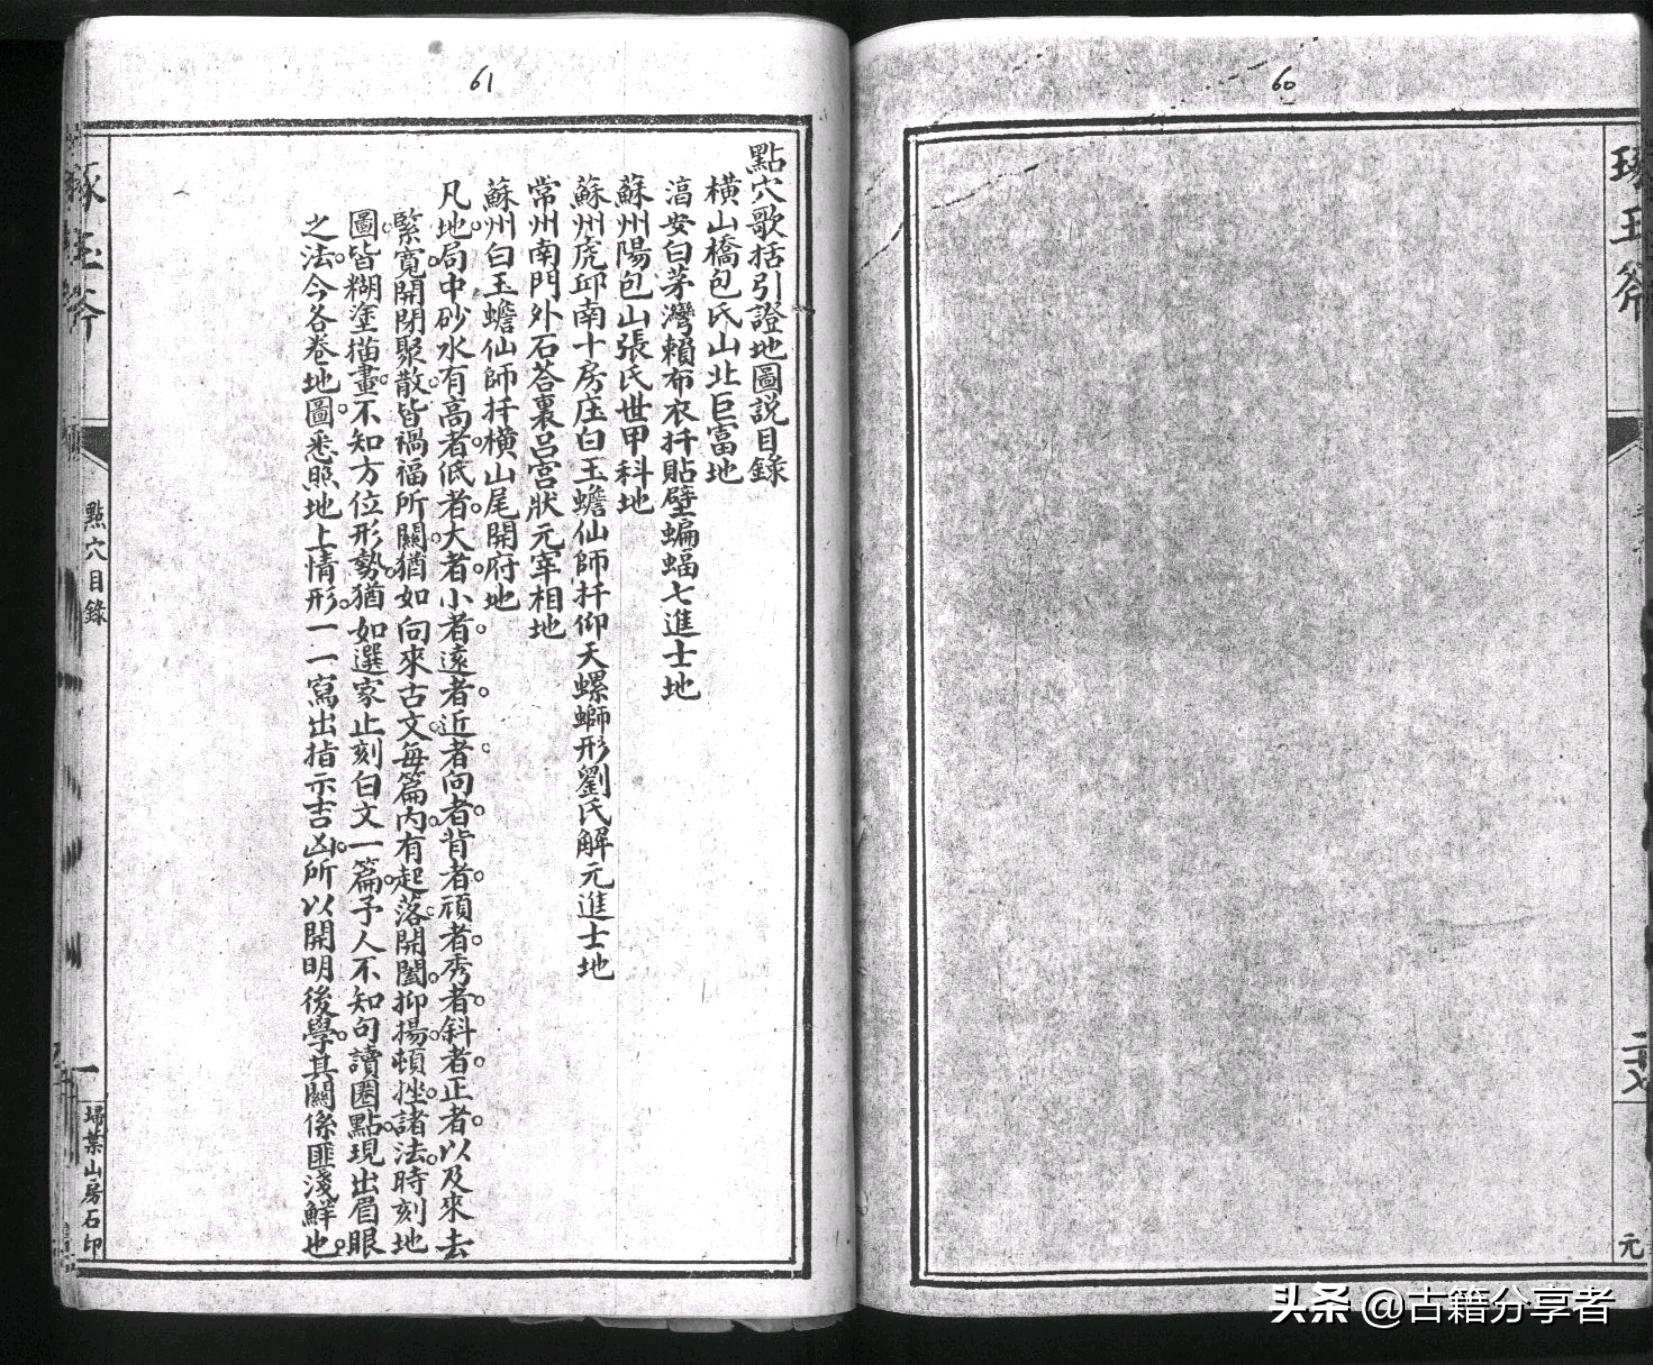 60
琢玉斧
元
61
點穴歌括引證地圖說目錄
橫山橋包氏山北巨富地
湻安白茅灣賴布衣扦貼壁蝙蝠七進士地
蘇州陽包山張氏世甲科地
蘇州虎邱南十房庄白玉蟾仙師扦仰天螺螄形劉氏解元進士地
常州南門外石荅裏呂宮狀元宰相地
蘇州白玉蟾仙師扦橫山尾開府地
凡地局中砂水有高者低者大者小者遠者近者向者背者頑者秀者斜者正者以及來去
緊寬開閉聚散皆禍福所關猶如向來古文每篇內有起落開闔抑揚頓挫諸法時刻地
圖皆糊塗描畫不知方位形勢猶如選家止刻白文一篇予人不知句讀圈點現出眉眼
之法今各卷地圖悉照地上情形一一寫出指示吉凶所以開明後學其關係匪淺鮮也
琢玉斧
點穴目錄
一
埽葉山房石印
头条 @古籍分享者